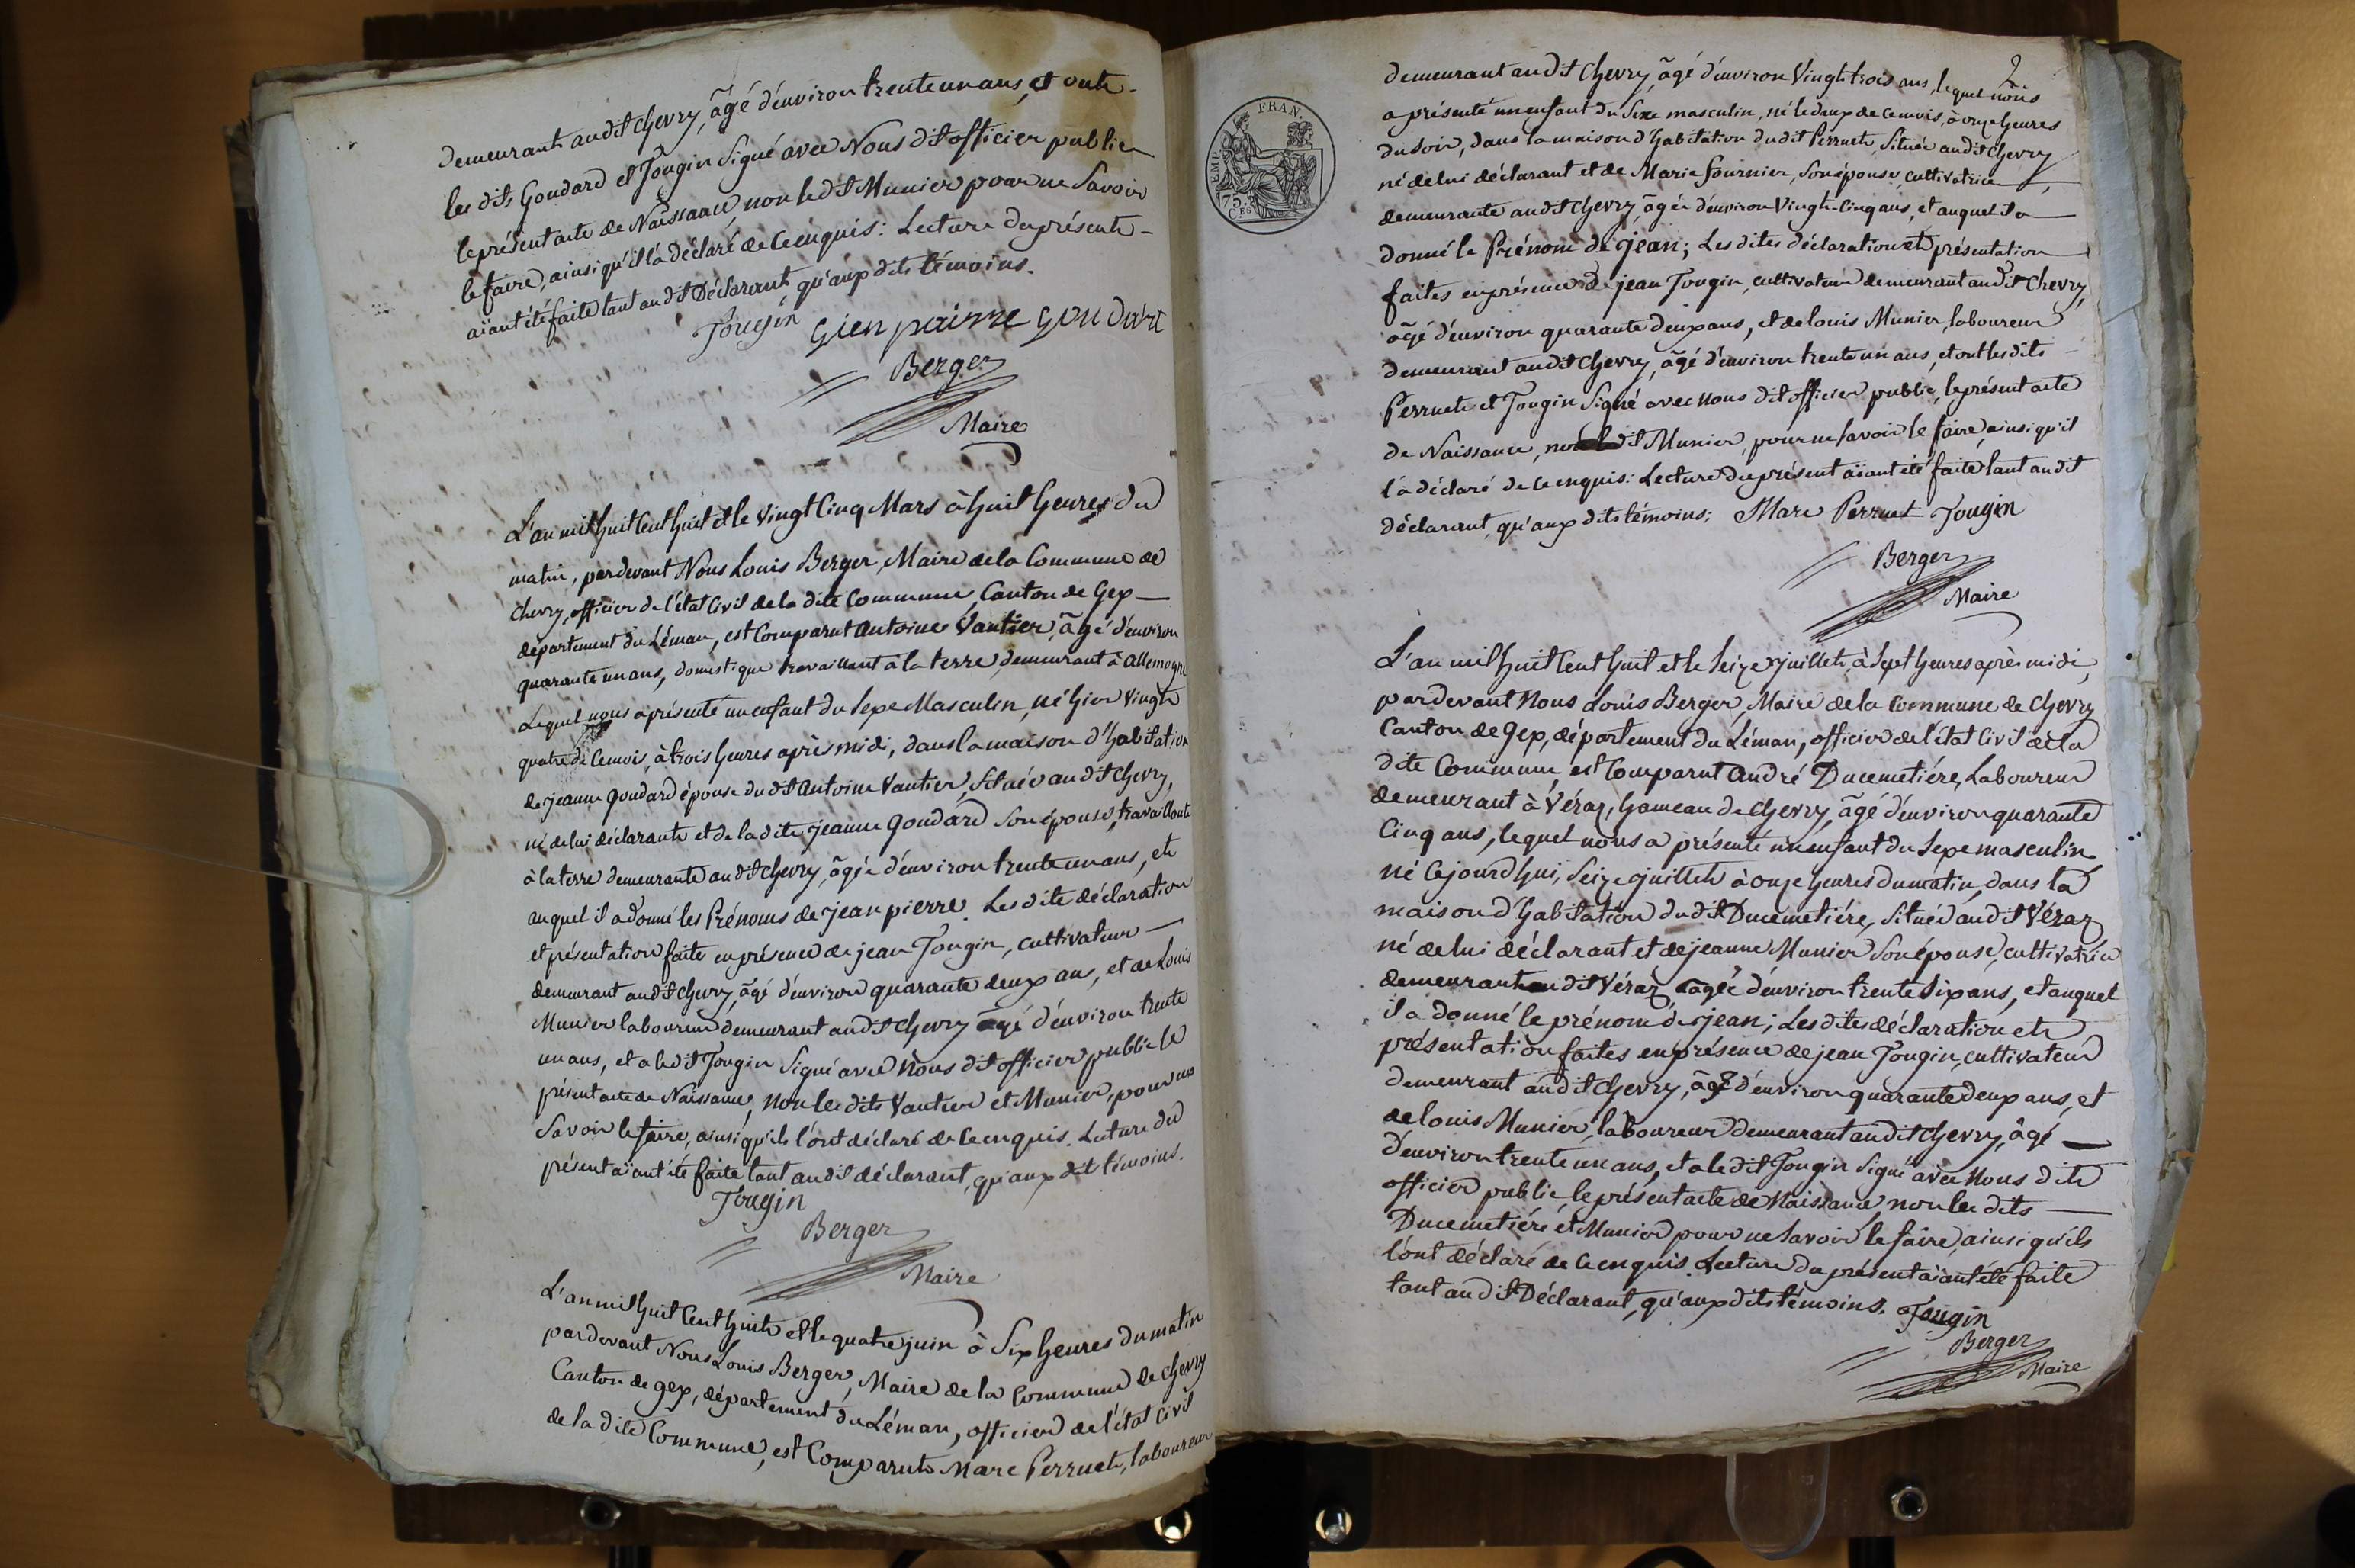 demeurant au dit Chevry, âgé d'environ trente un ans, et ont
les dits Goudard et Jougin Signé avec Nous dit officier public
le présent acte de Naissance non le dit Munier pour ne Savoir
le faire, ainsi qu'il l'a déclaré de ce enquis: Lecture du présente
aïant été faite tant au dit Déclarant qu'aux dits témoins.
Jougin gien pairre goudart
Berger
Maire
L'an mil huit Cent huit et le vingt Cinq Mars à huit heures du
matin, pardevant Nous Louis Berger, Maire de la Commune de
Chevry, officier de l'état Civil de la dite Commune, Canton de Gex
département du Léman, est Comparut Antoine Vautier, âgé d'environ
quarante un ans, domestique travaillant à la terre, demeurant à allemogne
Lequel nous a présenté un enfant du Sexe Masculin, né hier vingt
quatre de Cemois, à trois heures après midi, dans la maison d'habitation
de jeanne goudard épouse du dit Antoine Vautier, Située au dit Chevry,
né de lui déclarant et de la dite jeanne goudard Son épouse, travaillante
à la terre demeurante au dit Chevry, âgée d'environ trente un ans, et
auquel il a donné les Prénoms de jean pierre. Les dite déclaration
et présentation faite en présence de jean Jougin, cultivateur
demeurant au dit Chevry, âgé d'environ quarante deux ans, et de Louis
Munier laboureur demeurant au dit Chevry âgé d'environ trente
un ans, et a le dit Jougin Signé avec Nous dit officier public le
présent acte de Naissance, non les dits Vautier et Munier, pour ne
Savoir le faire, ainsi qu'ils l'ont déclaré de ce enquis. Lecture du
présent aïant été faite tant au dit déclarant, qu'aux dit témoins.
Jougin
Berger
Maire
L'an mil huit Cent huit et le quatre juin à Six heures du matin
pardevant Nous Louis Berger, Maire de la Commune de Chevry
Canton de gex, département du Léman, officier de l'état Civil
de la dite Commune, est Comparut Marc Perruet, laboureur
2
FRAN.
TEMP.
75.
C.ES
demeurant au dit Chevry, âgé d'environ Vingt trois ans, lequel nous
a présenté un enfant du Sexe masculin, né le deux de Cemois, à onze heures
du Soir, dans la maison d'habitation du dit Perruet, Située au dit Chevry
né de lui déclarant et de Marie fournier, Son épouse, cultivatrice,
demeurante au dit Chevry, âgée d'environ Vingt-Cinq ans, et auquel il a
donné le Prénom de jean; Les dites déclaration et présentation
faites en présence de jean Jougin, cultivateur demeurant au dit Chevry,
âgé d'environ quarante deux ans, et de louis Munier, laboureur
demeurant au dit Chevry, âgé d'environ trente un ans, et ont les dits
Perruet et Jougin Signé avec nous dit officier public, le présent acte
de Naissance, non le dit Munier, pour ne Savoir le faire, ainsi qu'il
l'a déclaré de ce enquis: Lecture du présent aïant été faite tant au dit
déclarant, qu'aux dits témoins; Marc Perruet Jougin
Berger
Maire
L'an mil huit Cent huit et le Seize juillet, à Sept heures après midi,
pardevant Nous Louis Berger, Maire de la Commune de Chevry
Canton de Gex, département du Léman, officier de l'état Civil de la
dite Commune, est Comparut André Ducemetiére, Laboureur
demeurant à Véraz, hameau de Chevry, âgé d'environ quarante
Cinq ans, lequel nous a présenté un enfant du Sexe masculin
né Cejourd'hui, Seize juillet à onze heures du matin, dans la
maison d'habitation du dit Ducemetiére, Située au dit Véraz
né de lui déclarant et de jeanne Munier Son épouse, cultivatrice
demeurant au dit Véraz, âgée d'environ trente Six ans, et auquel
il a donné le prénom de jean; Les dites déclaration et
présentation faites en présence de jean Jougin, cultivateur
demeurant au dit Chevry, âgé d'environ quarante deux ans, et
de louis Munier, laboureur demeurant au dit Chevry, âgé
d'environ trente un ans, et a le dit Jougin Signé avec Nous dit
officier public le présent acte de Naissance, non les dits
Ducemetiére et Munier pour ne Savoir le faire, ainsi qu'ils
l'ont déclaré de ce enquis. Lecture du présent aïant été faite
tant au dit Déclarant, qu'aux dits témoins. Jougin
Berger
Maire